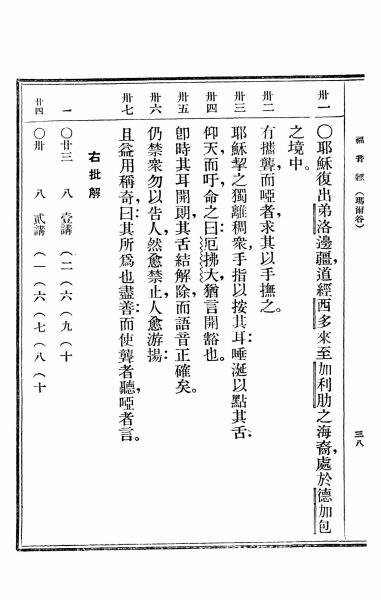 福音經 (瑪爾谷) 三八
卅一 〇耶穌復出弟洛邊疆,道經西多來至加利肋之海裔,處於德加包
之境中。
卅二 有攜聾而啞者,求其以手撫之。
卅三 耶穌挈之獨離稠衆,手指以按其耳;唾涎以點其舌;
卅四 仰天而吁,命之曰:厄拂大,猶言開豁也。
卅五 卽時其耳開朗,其舌結解除,而語音正確矣。
卅六 仍禁衆勿以告人,然愈禁止,人愈游揚;
卅七 且益用稱奇,曰:其所爲也盡善:而使聾者聽,啞者言。
右批解
一 〇廿三 八 壹講 (二 (六 (九 (十
廿四 〇卅 八 貳講 (一 (六 (七 (八 (十